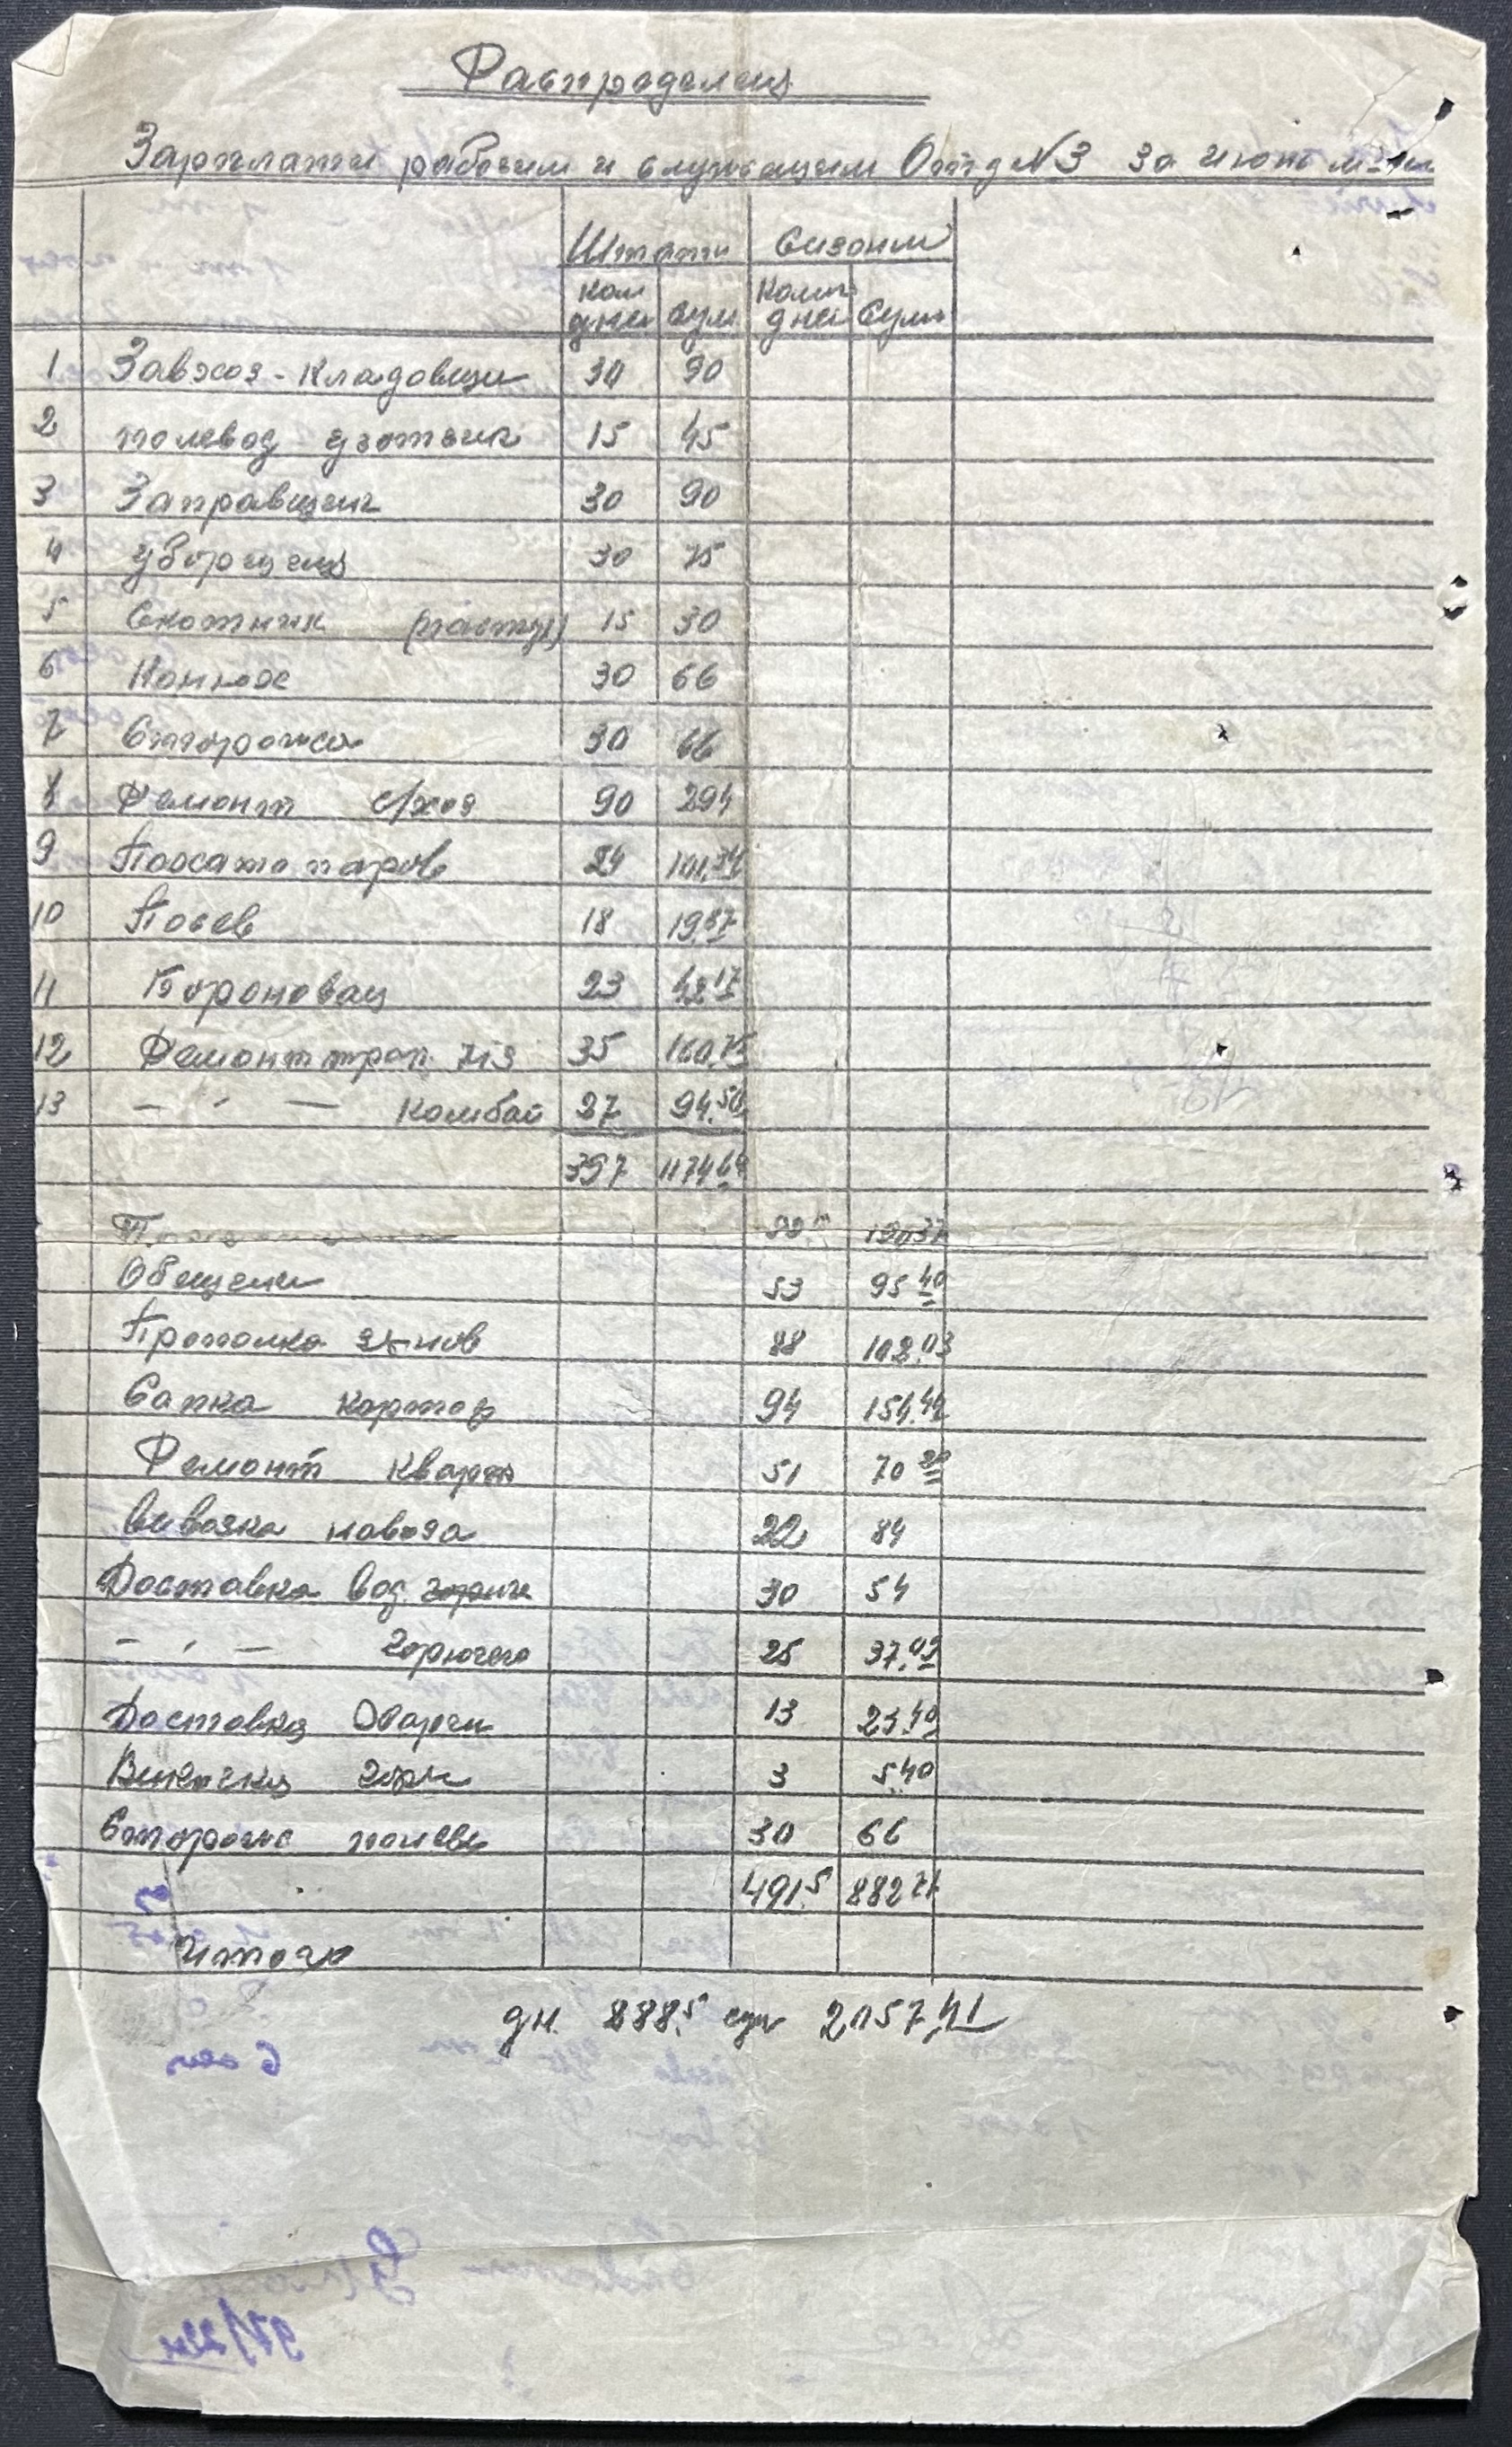 Распределения
Зарплати рабочим и служащим Отд №3 за июнь м-ц
Штати Сизоним
Кол дней сум Колич дней Сумм
1 Завхоз-Кладовщи 30 90
2 полевод учотчик 15 45
3 Заправщик 30 90
4 уборщица 30 75
5 Скотник (пастух) 15 30
6 Конюх 30 66
7 Сторожа 30 66
8 Ремонт с/хоз 90 294
9 паров 24 101.34
10 Посев 18 19.37
11 Бороновац 23 42.17
12 Ремонт трак. 35 160.75
13 — " — Комбай 27 94.50
397 1174.64
92.5
53 95.40
Прополка 88 102.03
Сапка картоф 94 154.44
Ремонт Кварти 51 70
Вивозка навоза 22 84
Доставка вод 30 54
— " — горючего 25 37
Доставка 13 23.40
3 5.40
Сторож 30 66
491.5 882
Итого
дн. 888.5 сум 2057,41